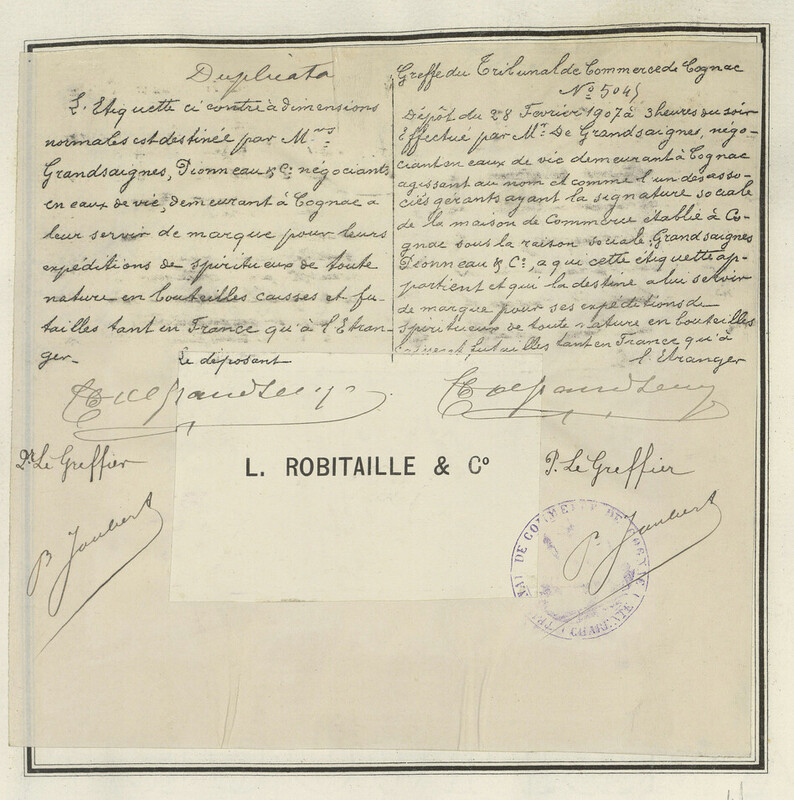 Duplicata
L'Etiquette ci contre à dimensions
normales est destinée par Mrs
Grandsaignes, Pionneau & Cie négociants
en eaux de vie, demeurant à Cognac a
leur servir de marque pour leurs
expéditions de spiritueux de toute
nature en bouteilles caisses et fu-
tailles tant en France qu'à l'Etran-
ger.
Le déposant
Pr Le Greffier
P. Joubert
Greffe du Tribunal de Commerce de Cognac
No 5045
Dépôt du 28 Fevrier 1907 à 3 heures du soir
Effectué par Mr De Grandsaignes, négo-
ciant en eaux de vie demeurant à Cognac
agissant au nom et comme l'un des asso-
ciés gerants ayant la signature sociale
de la maison de Commerce établie à Co-
gnac sous la raison sociale, Grandsaignes
Pionneau & Cie, a qui cette étiquette ap-
partient et qui la destine a lui servir
de marque pour ses expéditions de
spiritueux de toute nature en bouteilles
futailles tant en France qu'à
l'Etranger
P. Le Greffier
P. Joubert
L. ROBITAILLE & Co
TRIBUNAL DE COMMERCE DE COGNAC
CHARENTE